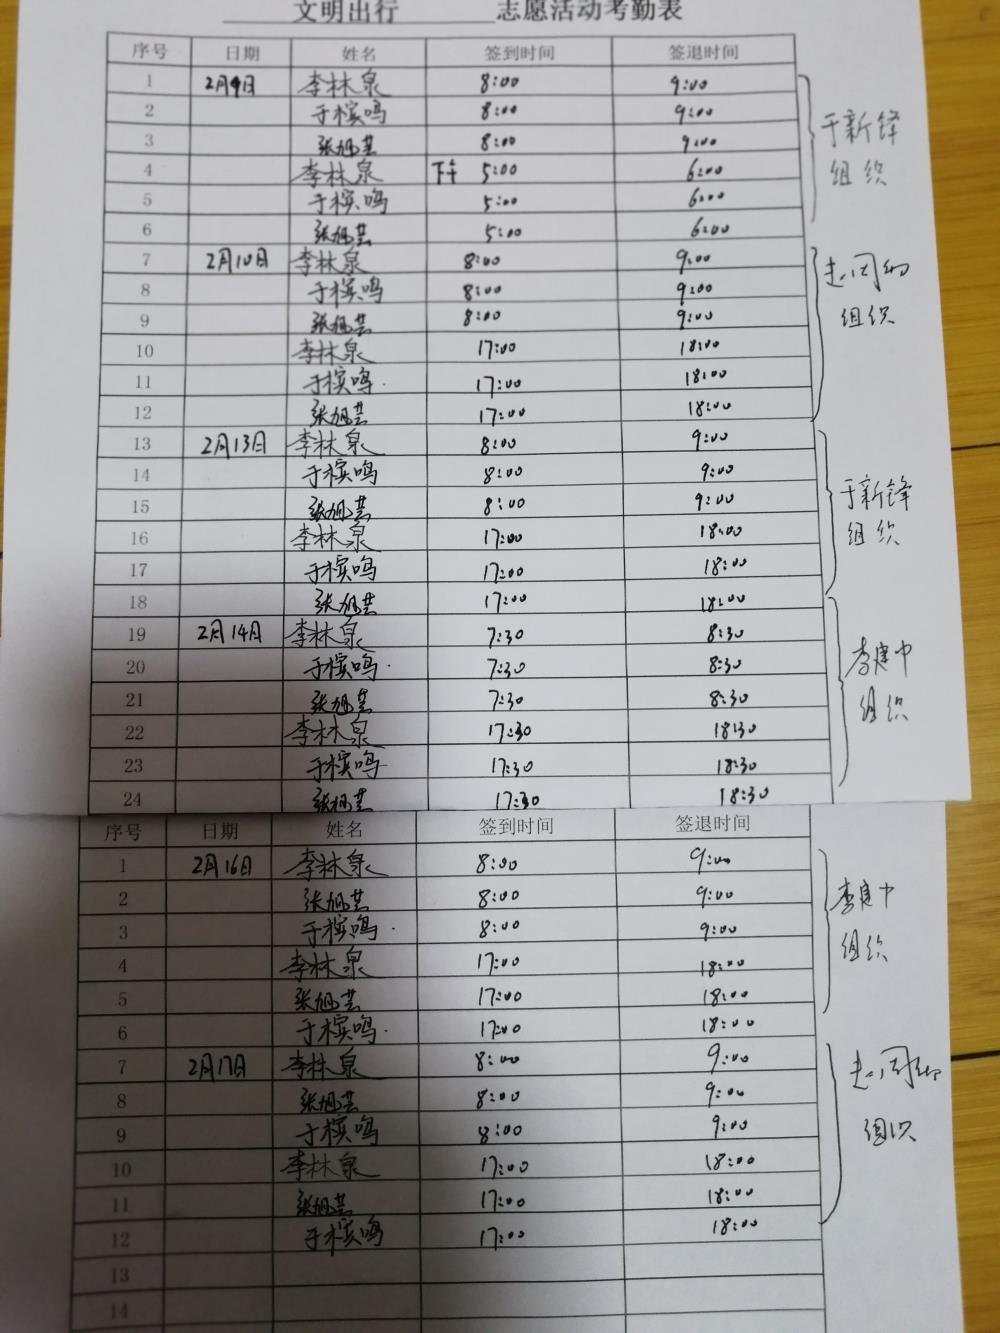 文明出行 志愿活动考勤表
序号 日期 姓名 签到时间 签退时间
1 2月9日 李林泉 8:00 9:00
2 于槟鸣 8:00 9:00
3 张旭芸 8:00 9:00
于新锋
4 李林泉 下午 5:00 6:00
组织
5 于槟鸣 5:00 6:00
6 张旭芸 5:00 6:00
7 2月10日 李林泉 8:00 9:00
8 于槟鸣 8:00 9:00
9 张旭芸 8:00 9:00
组织
10 李林泉 17:00 18:00
11 于槟鸣 17:00 18:00
12 张旭芸 17:00 18:00
13 2月13日 李林泉 8:00 9:00
14 于槟鸣 8:00 9:00
15 张旭芸 8:00 9:00
于新锋
16 李林泉 17:00 18:00
组织
17 于槟鸣 17:00 18:00
18 张旭芸 17:00 18:00
19 2月14日 李林泉 7:30 8:30
20 于槟鸣 7:30 8:30
李建中
21 张旭芸 7:30 8:30
组织
22 李林泉 17:30 18:30
23 于槟鸣 17:30 18:30
24 张旭芸 17:30 18:30
序号 日期 姓名 签到时间 签退时间
1 2月16日 李林泉 8:00 9:00
2 张旭芸 8:00 9:00
李建中
3 于槟鸣 8:00 9:00
组织
4 李林泉 17:00 18:00
5 张旭芸 17:00 18:00
6 于槟鸣 17:00 18:00
7 2月17日 李林泉 8:00 9:00
8 张旭芸 8:00 9:00
9 于槟鸣 8:00 9:00
组织
10 李林泉 17:00 18:00
11 张旭芸 17:00 18:00
12 于槟鸣 17:00 18:00
13
14